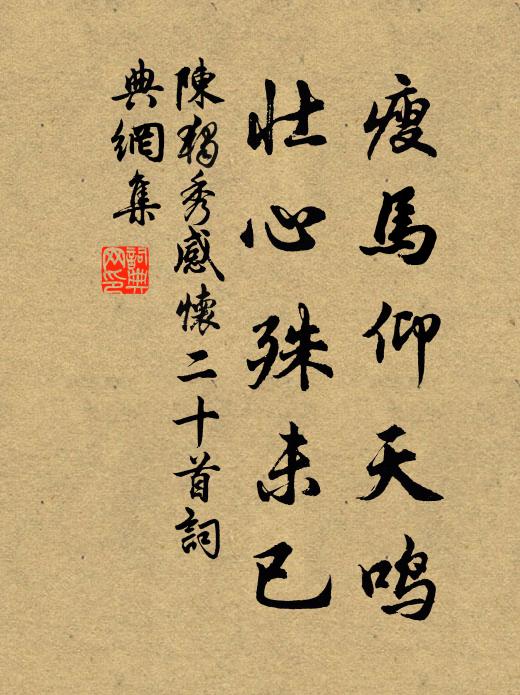 瘦馬仰天鸣
壮心殊未已
陳獨秀感懷二十首詞
典網集
詞典
网印